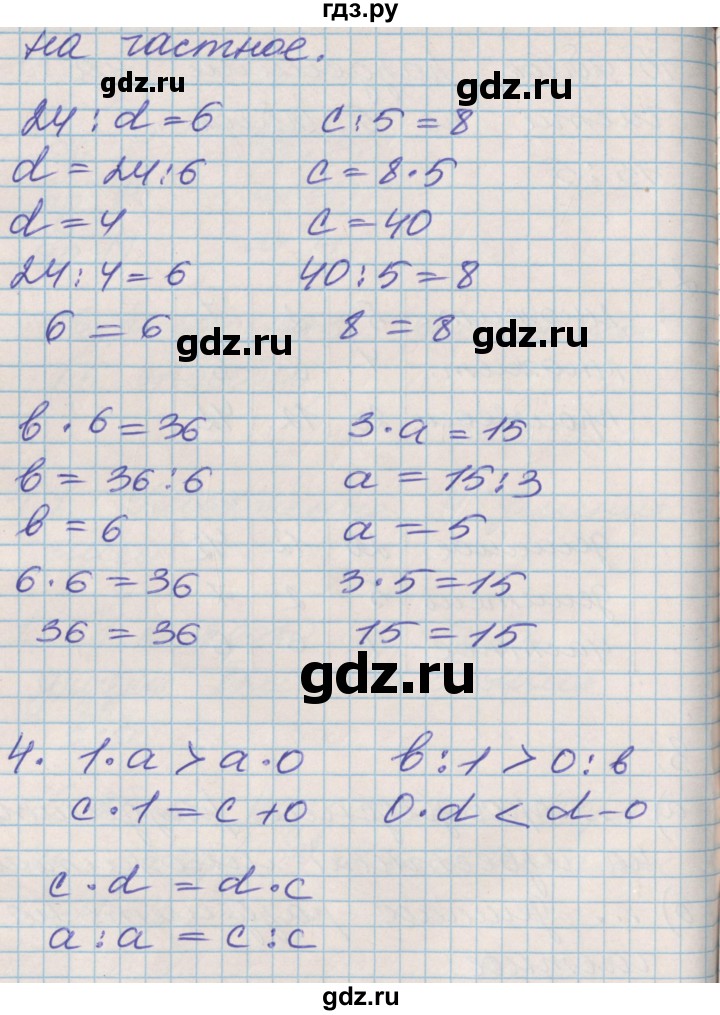 гдз.ру
на частное.
gdz.ru
gdz.ru
24 : d = 6 c : 5 = 8
d = 24 : 6 c = 8 · 5
d = 4 c = 40
24 : 4 = 6 40 : 5 = 8
6 = 6 8 = 8
gdz.ru
gdz.ru
в · 6 = 36 3 · a = 15
в = 36 : 6 a = 15 : 3
в = 6 a = 5
6 · 6 = 36 3 · 5 = 15
36 = 36 15 = 15
gdz.ru
4. 1 · a > a · 0 в : 1 > 0 : в
c · 1 = c + 0 0 · d < d - 0
c · d = d · c
a : a = c : c
gdz.ru